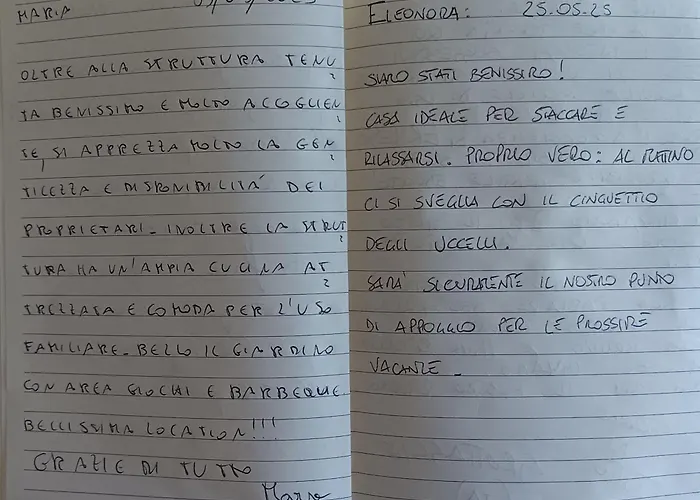 MARIA
OLTRE ALLA STRUTTURA TENU
TA BENISSIMO E MOLTO ACCOGLIEN
TE, SI APPREZZA MOLTO LA GEN
TILEZZA E DISPONIBILITÁ DEI
PROPRIETARI. INOLTRE LA STRUT
TURA HA UN'AMPIA CUCINA AT
TREZZATA E COMODA PER L'USO
FAMILIARE. BELLO IL GIARDINO
CON AREA GIOCHI E BARBEQUE
BELLISSIMA LOCATION!!!
GRAZIE DI TUTTO
ELEONORA: 25.05.25
SIAMO STATI BENISSIMO!
CASA IDEALE PER STACCARE E
RILASSARSI. PROPRIO VERO: AL MATTINO
CI SI SVEGLIA CON IL CINGUETTIO
DEGLI UCCELLI.
SARA' SICURAMENTE IL NOSTRO PUNTO
DI APPOGGIO PER LE PROSSIME
VACANZE.